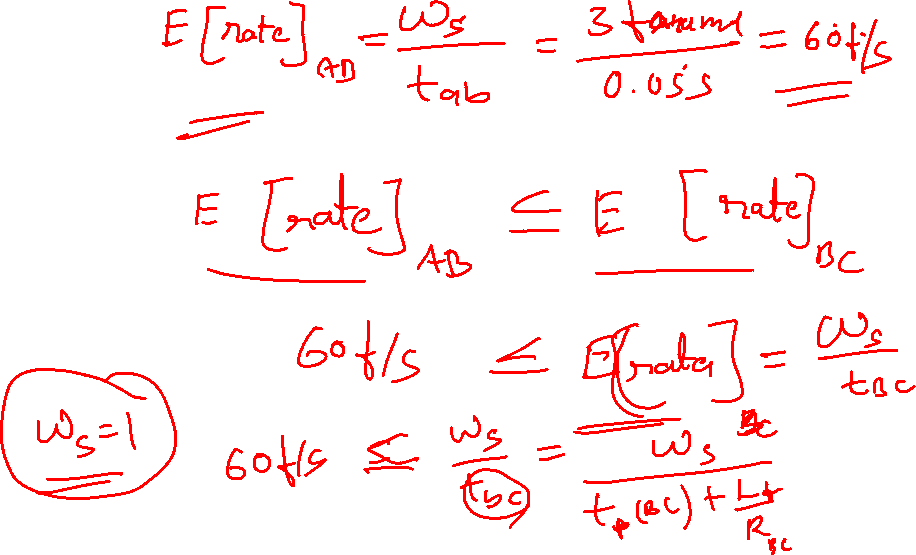 E[rate]AB = Ws/tab = 3 frame/0.05s = 60f/s
E [rate]AB ≤ E [rate]BC
60f/s ≤ E[rate] = Ws/tBC
Ws=1
60f/s ≤ Ws/tbc = Ws/(tp(BC) + Lf/RBC)